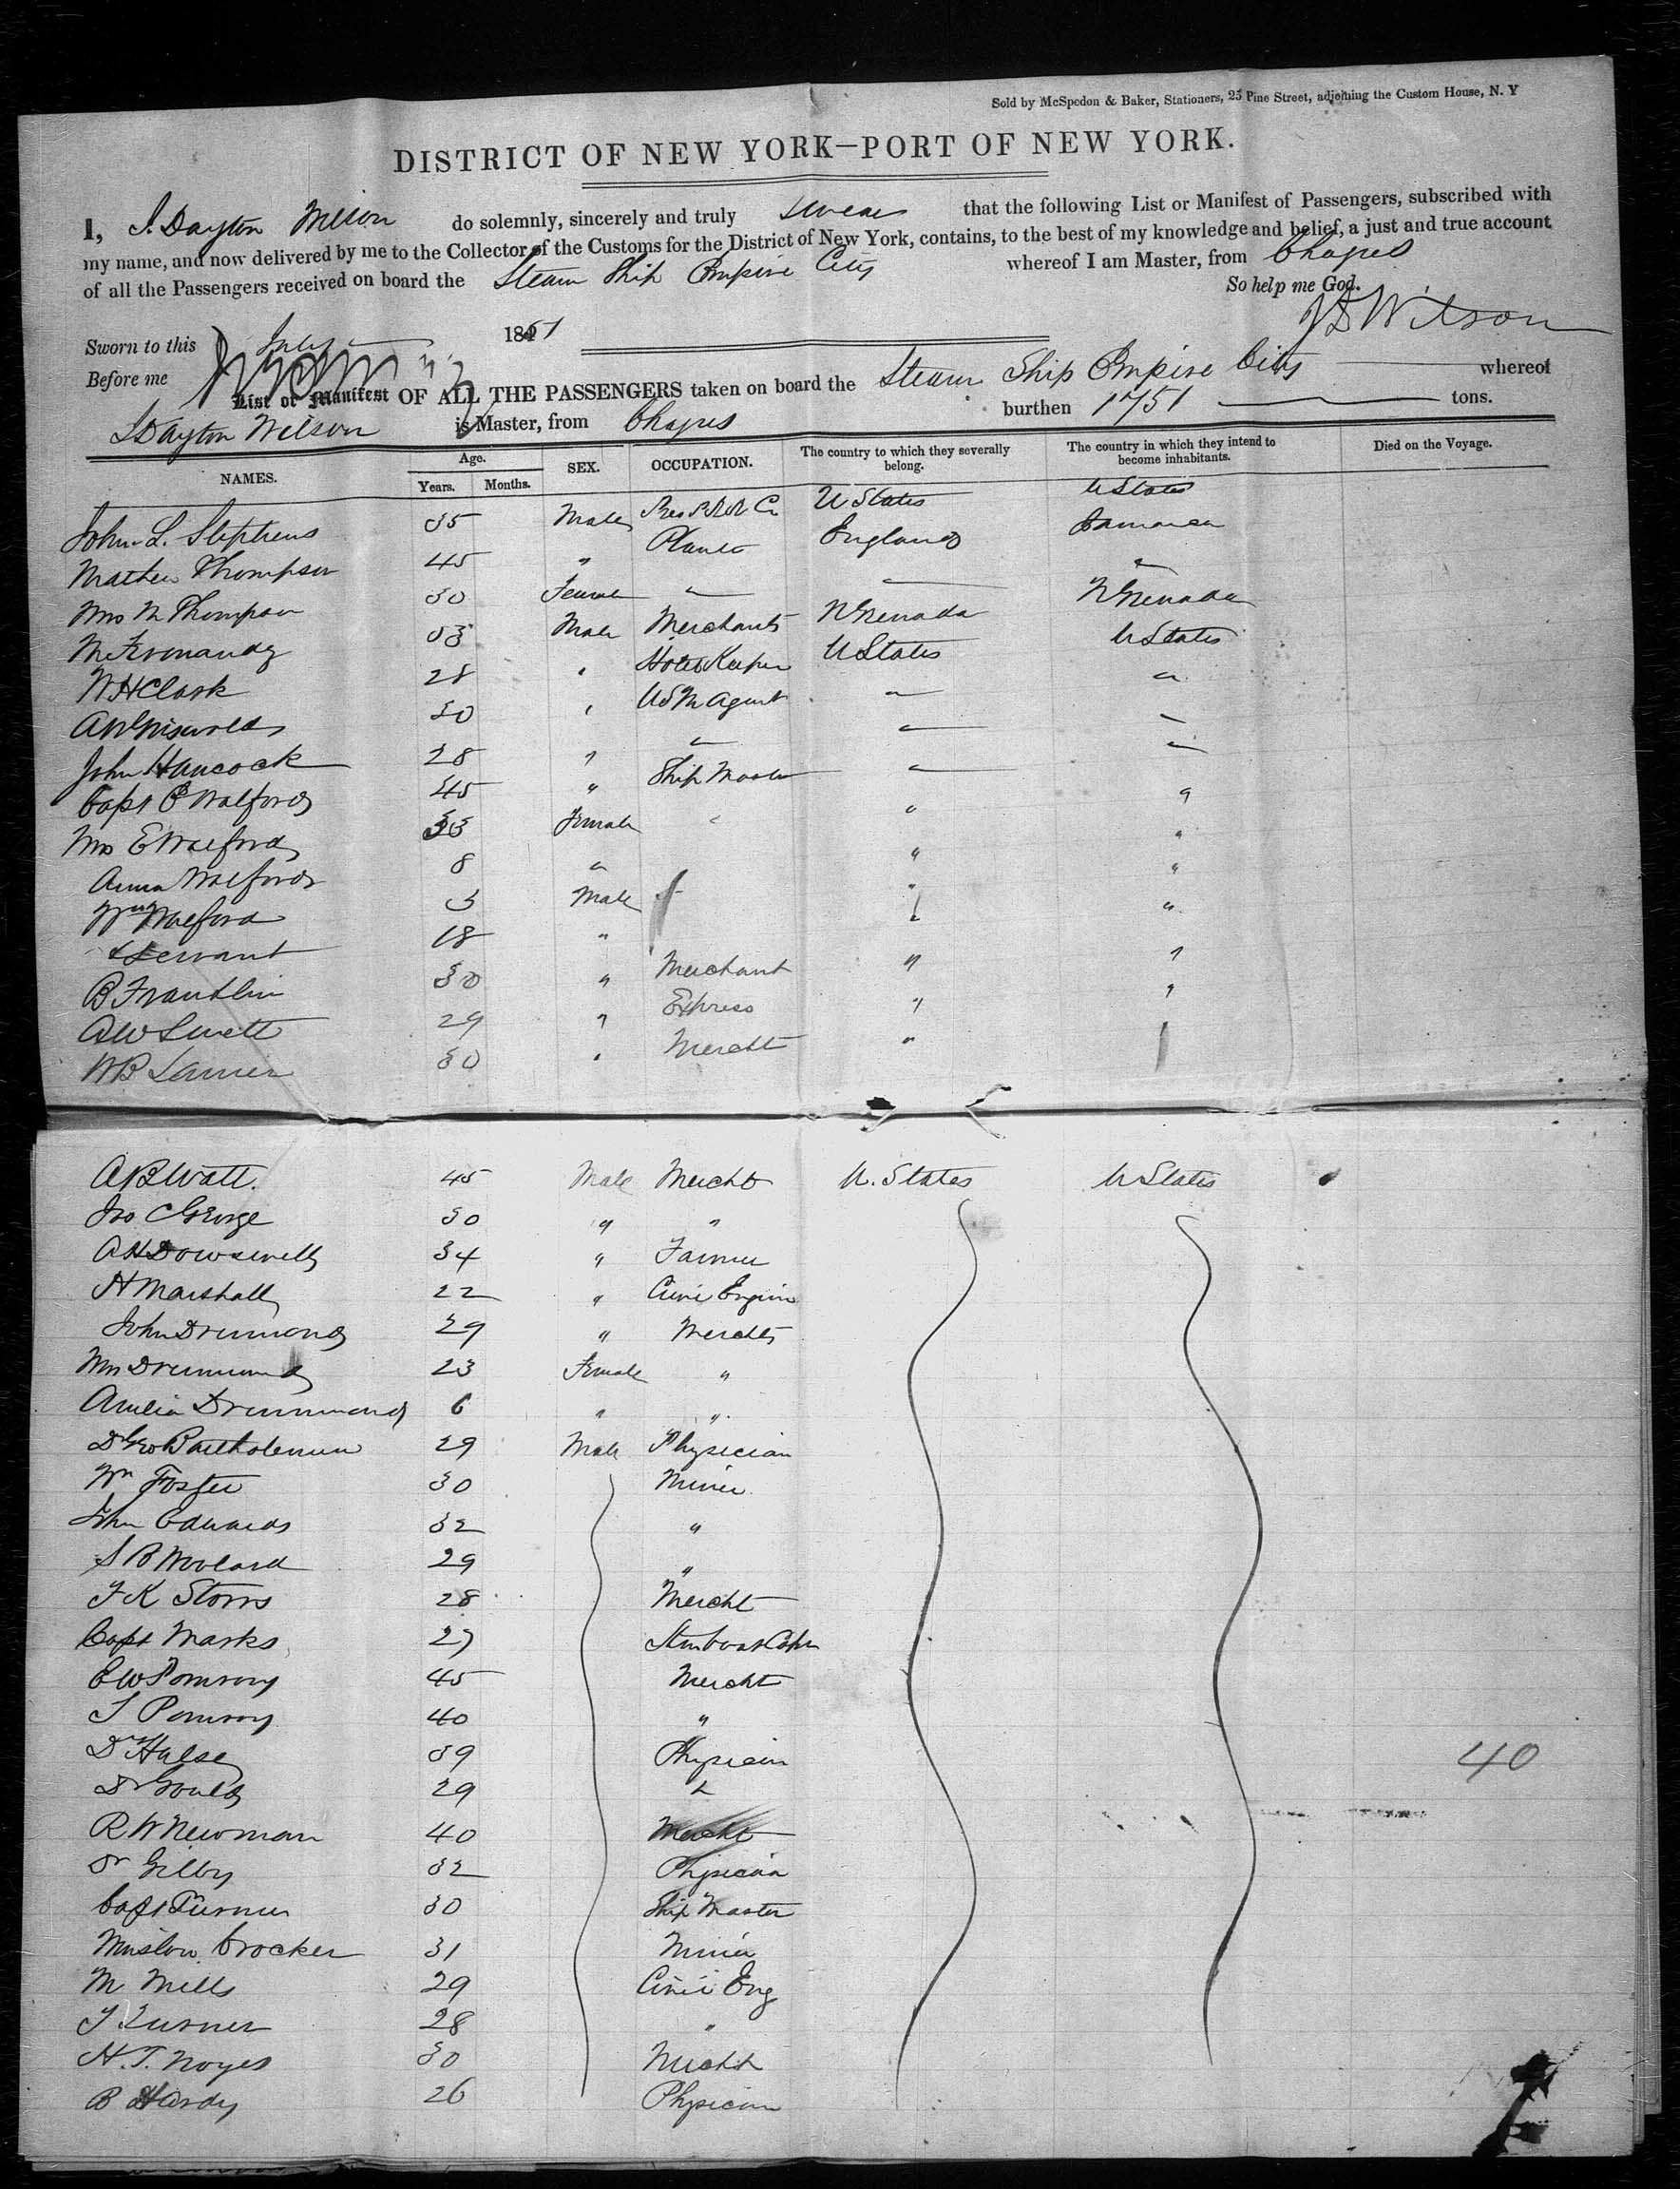 Sold by McSpedon & Baker, Stationers, 25 Pine Street, adjoining the Custom House, N. Y
DISTRICT OF NEW YORK—PORT OF NEW YORK.
I, J. Dayton Wilson do solemnly, sincerely and truly swear that the following List or Manifest of Passengers, subscribed with
my name, and now delivered by me to the Collector of the Customs for the District of New York, contains, to the best of my knowledge and belief, a just and true account
of all the Passengers received on board the Steam Ship Empire City whereof I am Master, from Chagres
So help me God.
Sworn to this July 1851 J D Wilson
Before me
List or Manifest OF ALL THE PASSENGERS taken on board the Steam Ship Empire City whereof
J Dayton Wilson is Master, from Chagres burthen 1751 tons.
NAMES. Age. Years. Months. SEX. OCCUPATION. The country to which they severally belong. The country in which they intend to become inhabitants. Died on the Voyage.
John L. Stephens 35 Male U States U States
Mathew Thompson 45 " Planter England Jamaica
Mrs M Thompson 30 Female " "
M Fernandez 33 Male Merchants N Grenada N Grenada
W H Clark 28 " Hotel Keeper U States U States
A W Griswold 30 " U S M Agent " "
John Hancock 28 " " " "
Capt E Walford 45 " Ship Master " "
Mrs E Walford 33 Female " " "
Anna Walford 8 " " "
Wm Walford 3 Male " "
& Servant 18 " " "
B Franklin 30 " Merchant " "
A W Swett 29 " Express " "
W B Lanier 30 " Mercht "
A B Watt. 45 Male Mercht U. States U States
Jno C George 30 " "
A H Dowswell 34 " Farmer
H Marshall 22 " Civil Engin
John Drummond 29 " Mercht
Mrs Drummond 23 Female "
Amelia Drummond 6 " "
Dr Geo Bartholemew 29 Male Physician
Wm Foster 30 Miner
John Edwards 32 "
S B Woolard 29 "
F K Storrs 28 Mercht
Capt Marks 27
E W Pomroy 45 Mercht
S Pomroy 40 "
Dr Halsey 39 Physician
Dr Gould 29 "
R W Newman 40 Mercht
Dr Gilby 32 Physician
Capt Turner 30 Ship Master
Winslow Crocker 31 Miner
M Mills 29 Civil Eng
T Turner 28 "
H. T. Noyes 30 Mercht
B Hardy 26 Physician
40